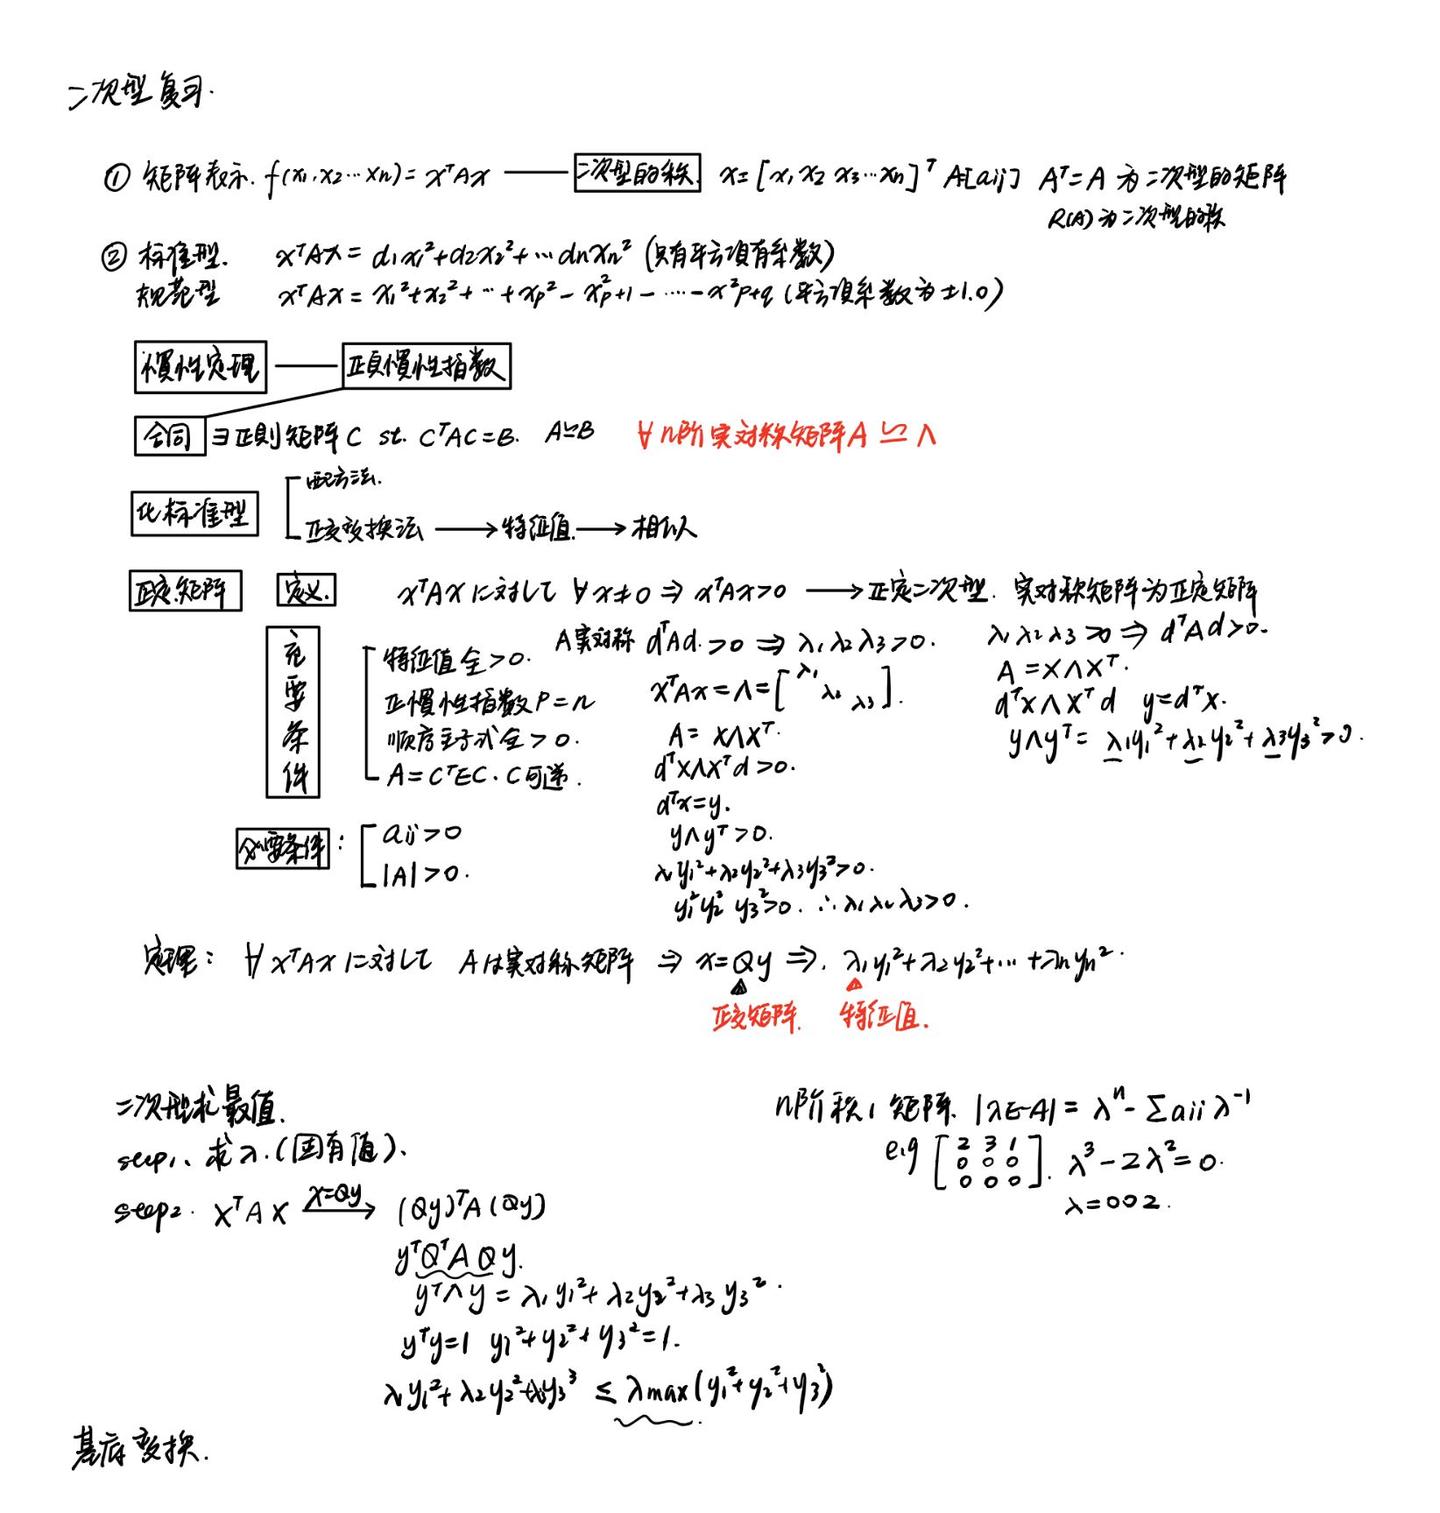 二次型复习.
① 矩阵表示. f(x₁,x₂…xn)= xᵀAx —— 二次型的秩. x=[x₁ x₂ x₃…xn]ᵀ A=[aij] Aᵀ=A 为二次型的矩阵
R(A)为二次型的秩
② 标准型. xᵀAx= d₁x₁²+d₂x₂²+…dnxn² (只有平方项有系数)
规范型 xᵀAx= x₁²+x₂²+…+xp²-x²p+1-…-x²p+q (平方项系数为±1.0)
惯性定理 —— 正负惯性指数
合同 ∃正则矩阵C st. CᵀAC=B. A≃B ∀n阶实对称矩阵A ≃ Λ
化标准型
配方法.
正交变换法 → 特征值 → 相似
正定矩阵 定义. xᵀAxに対して ∀x≠0 ⇒ xᵀAx>0 → 正定二次型. 实对称矩阵为正定矩阵
充要条件
特征值全>0.
正惯性指数P=n
顺序主子式全>0.
A=CᵀEC. C可逆.
A实对称 dᵀAd.>0 ⇒ λ₁λ₂λ₃>0.
xᵀAx=Λ=[λ₁ λ₂ λ₃].
A= xΛxᵀ.
dᵀxΛxᵀd>0.
dᵀx=y.
yΛyᵀ>0.
λ₁y₁²+λ₂y₂²+λ₃y₃²>0.
y₁²y₂² y₃²>0. ∴λ₁λ₂λ₃>0.
λ₁λ₂λ₃>0 ⇒ dᵀAd>0.
A=XΛXᵀ.
dᵀxΛxᵀd y=dᵀx.
yΛyᵀ= λ₁y₁²+λ₂y₂²+λ₃y₃²>0.
必要条件:
aij>0
|A|>0.
定理: ∀xᵀAxに対して Aは実対称矩阵 ⇒ x=Qy ⇒. λ₁y₁²+λ₂y₂²+…+λnyn².
正交矩阵. 特征值.
二次型求最值.
seep1、求λ.(固有值).
seep2. XᵀAX x=Qy → (Qy)ᵀA(Qy)
yᵀQᵀAQy.
yᵀΛy=λ₁y₁²+λ₂y₂²+λ₃y₃².
yᵀy=1 y₁²+y₂²+y₃²=1.
λ₁y₁²+λ₂y₂²+λ₃y₃³ ≤ λmax(y₁²+y₂²+y₃²)
n阶秩1矩阵. |λE-A|= λⁿ-Σaiiλ⁻¹
e.g [2 3 1
0 0 0
0 0 0]. λ³-2λ²=0.
λ=002.
基底变换.